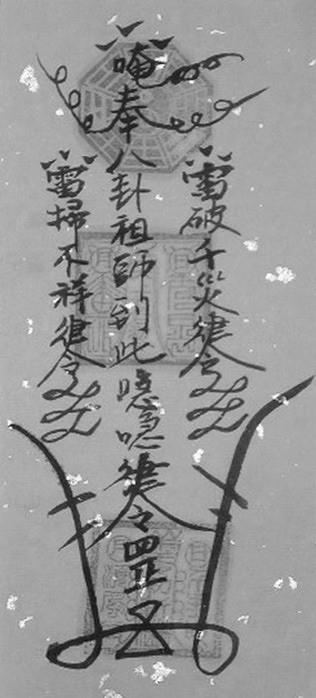 雷破千災律令
唵奉八卦祖師到此噫噫律令罡
雷掃不祥律令